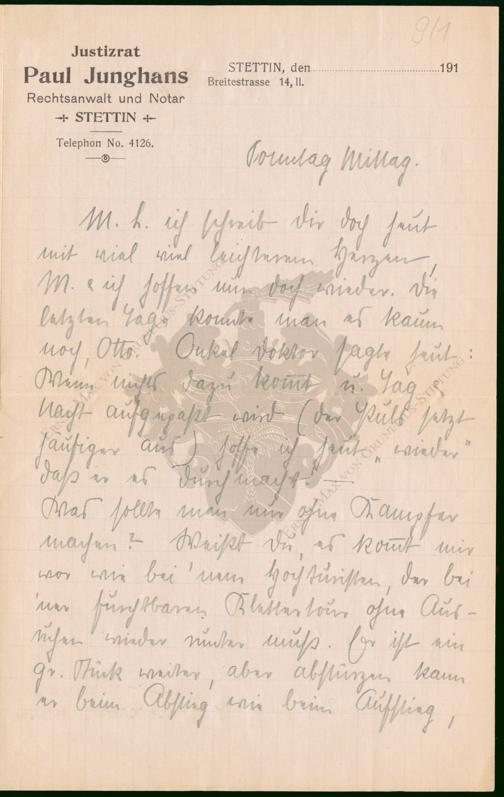 9/1
Justizrat
Paul Junghans
Rechtsanwalt und Notar
STETTIN
Telephon No. 4126.
STETTIN, den 191
Breitestrasse 14, II.
Sonntag Mittag.
M. L. ich schreib dir doch heut
mit viel viel leichterem Herzen,
M. & ich hoffen nun doch wieder. Die
letzten Tage konnte man es kaum
noch, Otto. Onkel Doktor sagte heut:
Wenn nichts dazu kommt u. Tag &
Nacht aufgepaßt wird (der Puls setzt
häufiger aus) hoffe ich heut „wieder"
daß er es durchmacht." —
Was sollte man nur ohne Kampfer
machen? Weißt Du, es kommt mir
vor wie bei 'nem Hochturisten, der bei
'ner furchtbaren Klettertour ohne Aus-
ruhen wieder runter muß. Er ist ein
gr. Stück weiter, aber abstürzen kann
er beim Abstieg wie beim Aufstieg,
ERNST MAX VON GRUNELIUS-STIFTUNG
ERNST MAX VON GRUNELIUS-STIFTUNG